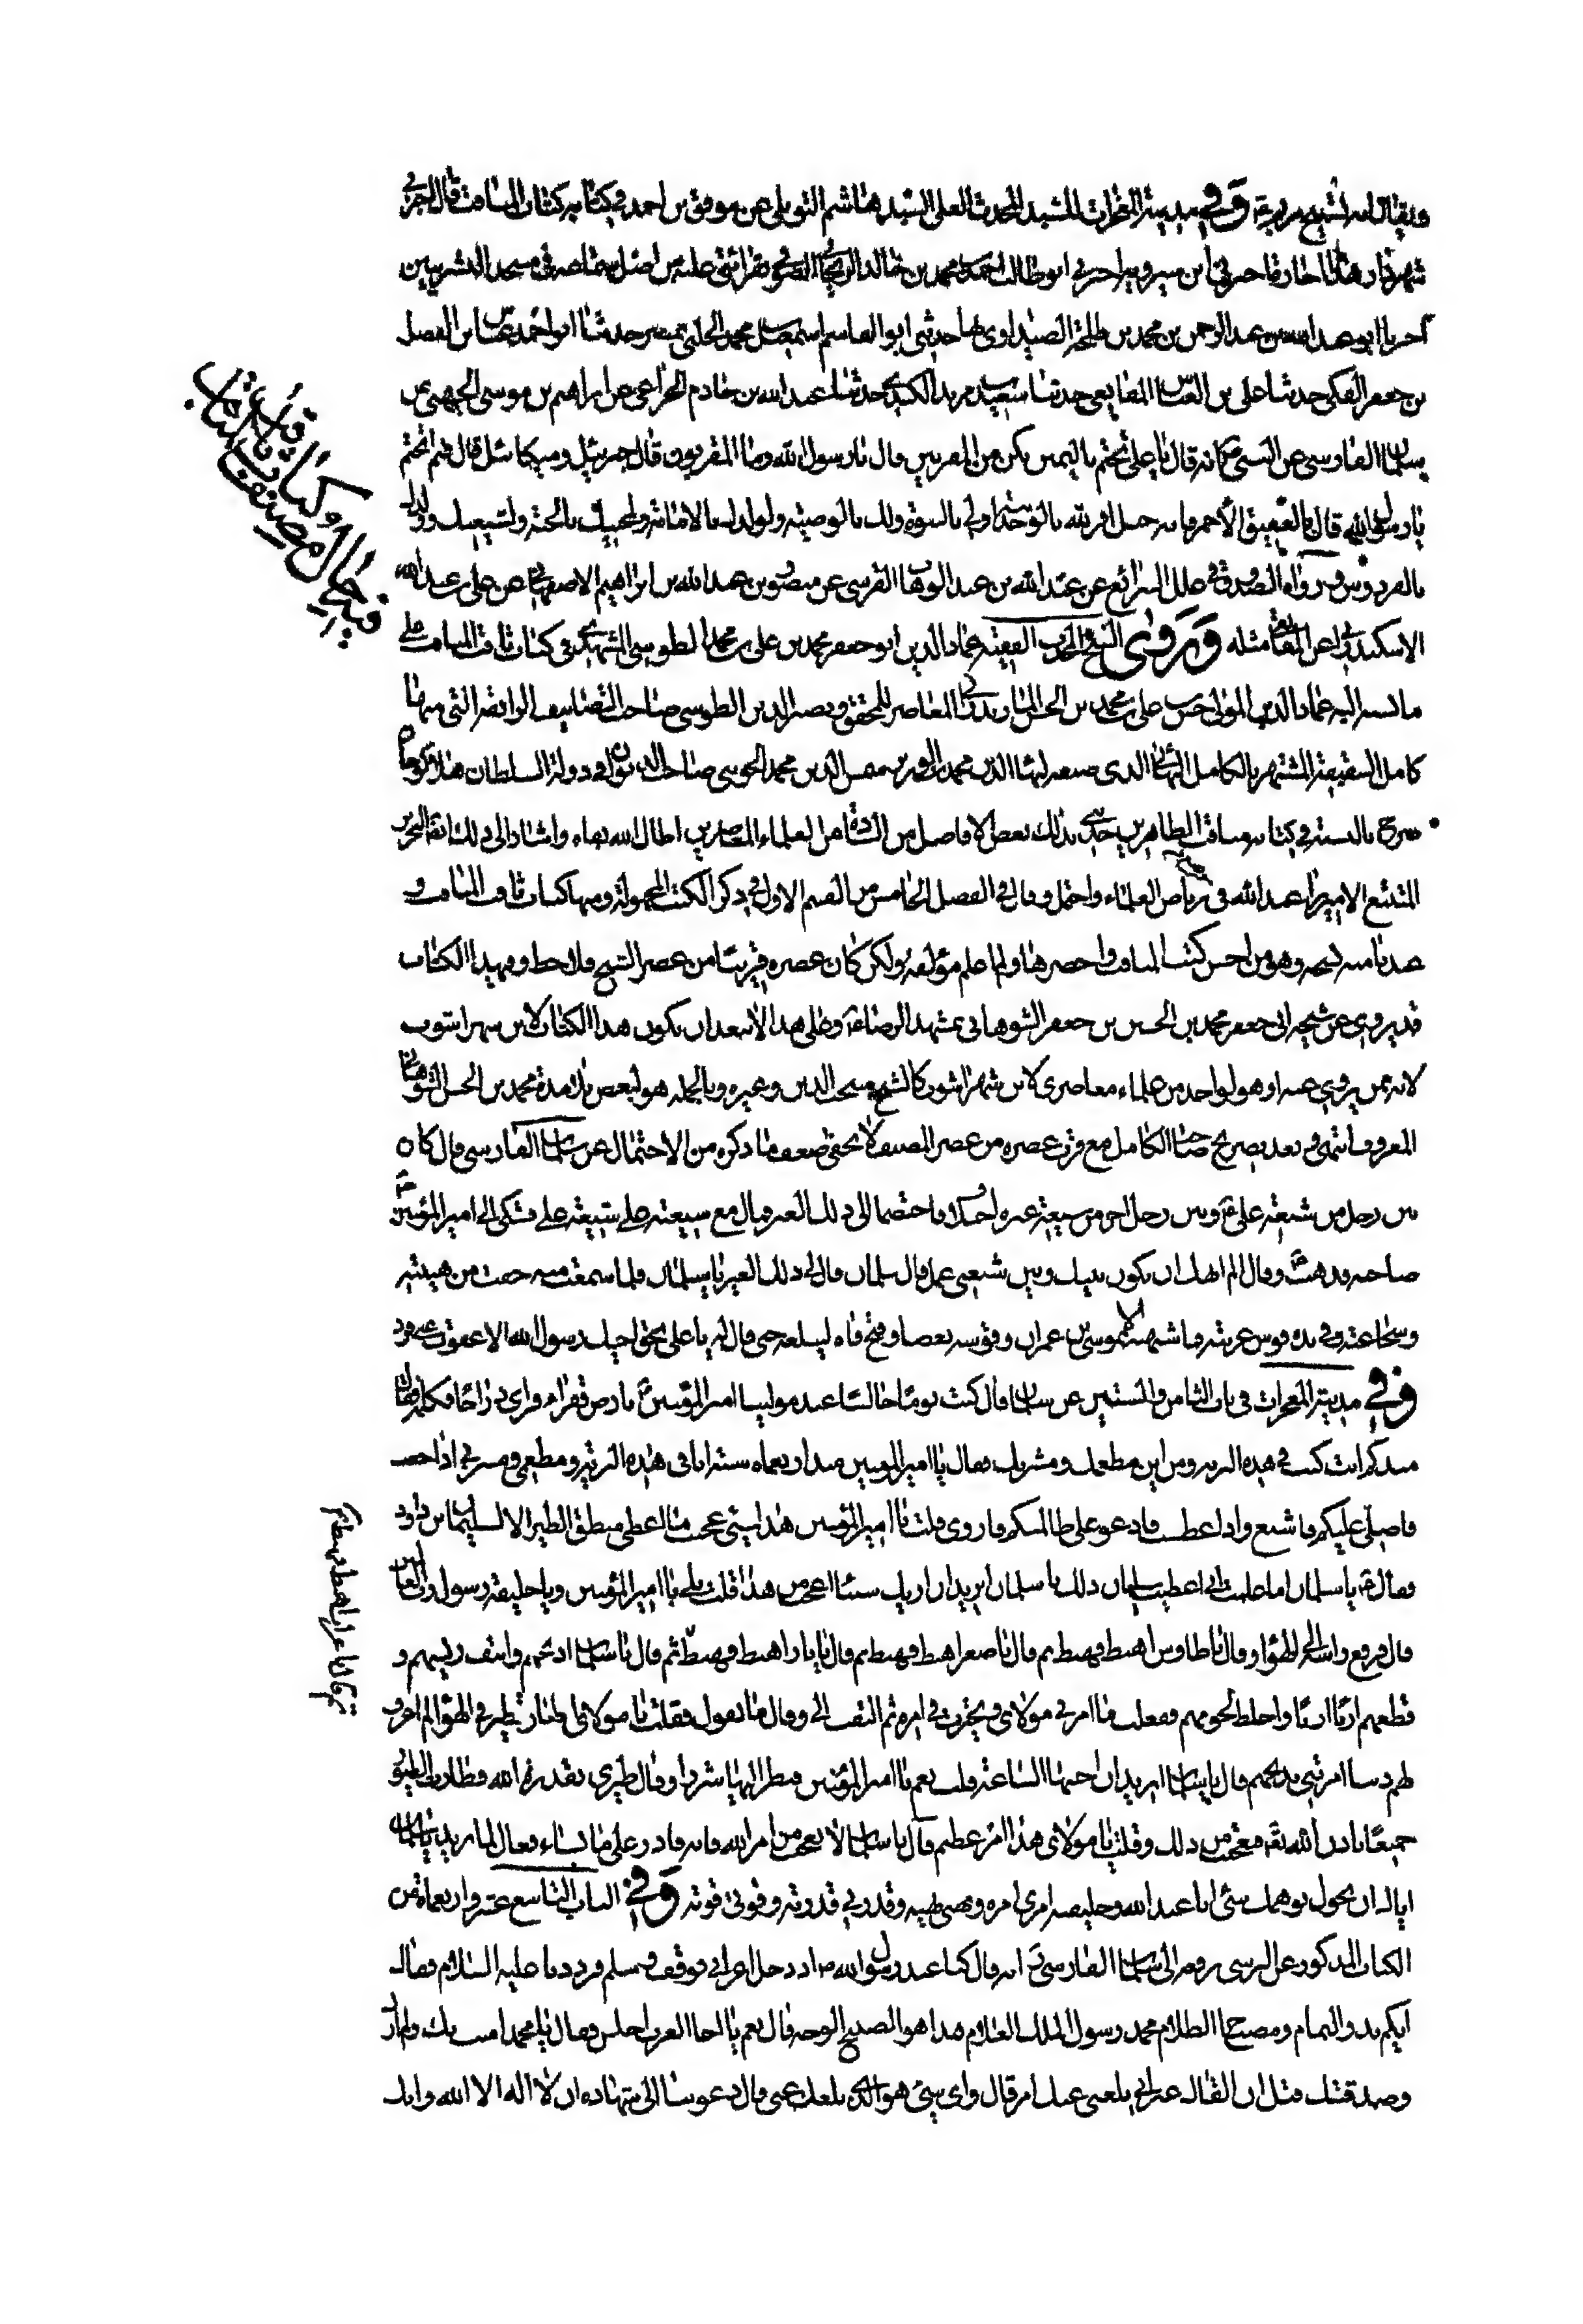 وفي مدينة المعجزات للسيد المحدث العلي السيد هاشم التوبلي عن موفق بن احمد في كتابه كتاب المناقب قال اخبرني
شهردار هذا اجازة اخبرني ابي شيرويه اخبرني ابو طالب احمد بن محمد بن خالد الريحاني الصوفي بقرائتي عليه من اصل سماعه في مسجد الشونيزيه
اخبرنا ابو عبد الله بن عبد الرحمن بن محمد بن طلحة الصيداوي بها حدثني ابو القاسم اسمعيل محمد الحلبي بمصر حدثنا ابو احمد العباس بن الفضل
بن جعفر المكي حدثنا علي بن العباس المقانعي حدثنا سعيد مزيد الكندي حدثنا عبد الله بن حازم الخزاعي عن ابراهيم بن موسى الجهني عن
سلمان الفارسي عن النبي ص انه قال يا علي تختم باليمين تكن من المقربين قال يا رسول الله وما المقربون قال جبرئيل وميكائيل قال فبم اتختم
يا رسول الله قال بالعقيق الاحمر فانه جبل اقر لله بالوحدانية ولي بالنبوة ولك بالوصية ولولدك بالامامة ولمحبيك بالجنة ولشيعتك وولدك
بالفردوس ورواه الصدوق في علل الشرائع عن عبد الله بن عبد الوهاب القرشي عن منصور بن عبد الله بن ابراهيم الاصفهاني عن علي بن عبد الله
الاسكندراني عن المقانعي مثله وروى الشيخ الفقيه عماد الدين ابو جعفر محمد بن علي بن محمد الطوسي المشهدي في كتاب ثاقب المناقب على
ما نسبه اليه عماد الدين المولى حسن بن علي بن محمد بن الحسن المازندراني المعاصر للمحقق نصير الدين الطوسي صاحب التصانيف الرائقة التي منها
كامل السقيفة المشتهر بالكامل البهائي الذي صنفه لبهاء الدين محمد بن الوزير شمس الدين محمد الجويني صاحب الديوان في دولة السلطان هلاكو خان
صرح بالنسبة في كتابه مناقب الطاهرين حدثني بذلك بعض الافاضل من السادة من العلماء المعاصرين اطال الله بقاءه واشار الى ذلك النحرير
المتتبع الاميرزا عبد الله في رياض العلماء واحتمل وقال في الفصل الخامس من القسم الاول في ذكر الكتب المجهولة ومنها كتاب ثاقب المناقب و
عندنا منه نسخة وهو من احسن كتب المناقب واخصرها ولم اعلم مؤلفه ولكن كان عصره قريبا من عصر الشيخ فلاحظ وفي هذا الكتاب
قد يروي عن شيخه ابي جعفر محمد بن الحسين بن جعفر الشوهاني بمشهد الرضا ع وعلى هذا لا يبعد ان يكون هذا الكتاب لابن شهراشوب
لانه ممن يروي عنه او هو لواحد من علماء معاصري لابن شهراشوب كالشيخ منتجب الدين وغيره وبالجملة هو لبعض تلامذة محمد بن الحسن الشوهاني
المعروف انتهى وبعد تصريح صاحب الكامل مع قرب عصره من عصر المصنف لا يخفى ضعف ما ذكره من الاحتمال عن سلمان الفارسي قال كان
بين رجل من شيعة علي ع وبين رجل اخر من شيعة غيره فاختصما الى ذلك الغير فمال مع شيعته على شيعة علي فشكى الى امير المؤمنين ع
صاحبه وقال الم اقل ان يكون بينك وبين شيعتي عمل قال سلمان قال لي ذلك الغير يا سلمان فلما سمعت منه خفت من هيبته
وشجاعته وفي يده قوس عربية فما شبهته الا بموسى بن عمران وقوسه بعصا وفتح فاه ليبلعه حتى قال له يا علي بحق اخيك رسول الله الا عفوت عني فرد
وفي مدينة المعجزات في باب الثامن والستين عن سلمان قال كنت يوما جالسا عند مولينا امير المؤمنين ع بارض قفراء فراى دراجا فكلمه فقال له
منذ كم انت كنت في هذه البرية ومن اين مطعمك ومشربك فقال يا امير المؤمنين منذ اربعماة سنة انا في هذه البرية ومطعمي ومشربي اذا جعت
فاصلي عليكم فاشبع واذا عطشت فادعو على ظالميكم فاروى قلت يا امير المؤمنين هذا شيء عجيب ما اعطي منطق الطير الا لسليمان بن داود
فقال ع يا سلمان اما علمت اني اعطيت سليمان ذلك يا سلمان اتريد ان اريك شيئا اعجب من هذا قلت بلى يا امير المؤمنين ويا خليفة رسول رب العالمين
قال فرفع راسه الى الهواء وقال يا طاووس اهبط فهبط ثم قال يا صقر اهبط فهبط ثم قال يا باز اهبط فهبط ثم قال يا سلمان اذبحهم وانتف ريشهم و
قطعهم اربا اربا واخلط لحومهم ففعلت ما امرني مولاي وتحيرت في امره ثم التفت الي وقال ما تقول فقلت يا مولاي اطيار تطير في الهواء لم اعرف
لهم ذنبا امرتني بذبحهم قال يا سلمان اتريد ان احييها الساعة قلت نعم يا امير المؤمنين فنظر اليها شزرا وقال طيري بقدرة الله فطارت الطيور
جميعا باذن الله تع فتعجبت من ذلك وقلت يا مولاي هذا امر عظيم قال يا سلمان لا تعجب من امر الله فانه قادر على ما يشاء فعال لما يريد يا سلمان
اياك ان يحول بوهمك شيء انا عبد الله وخليفته امري امره ونهيي نهيه وقدرتي قدرته وقوتي قوته وفي الباب التاسع عشر واربعمائة من
الكتاب المذكور عن البرسي يرفعه الى سلمان الفارسي رض انه قال كنا عند رسول الله ص اذ دخل اعرابي فوقف وسلم فرددنا عليه السلام فقال
ايكم بدر التمام ومصباح الظلام محمد رسول الملك العلام هذا هو الصبيح الوجه قال نعم يا اخا العرب اجلس فقال يا محمد امنت بك ولم ارك
وصدقتك قبل ان القاك غير انه بلغني عنك امر قال واي شيء هو الذي بلغك عني قال دعوتنا الى شهادة ان لا اله الا الله وانك
ثم قال يا غراب اهبط فهبط ثم